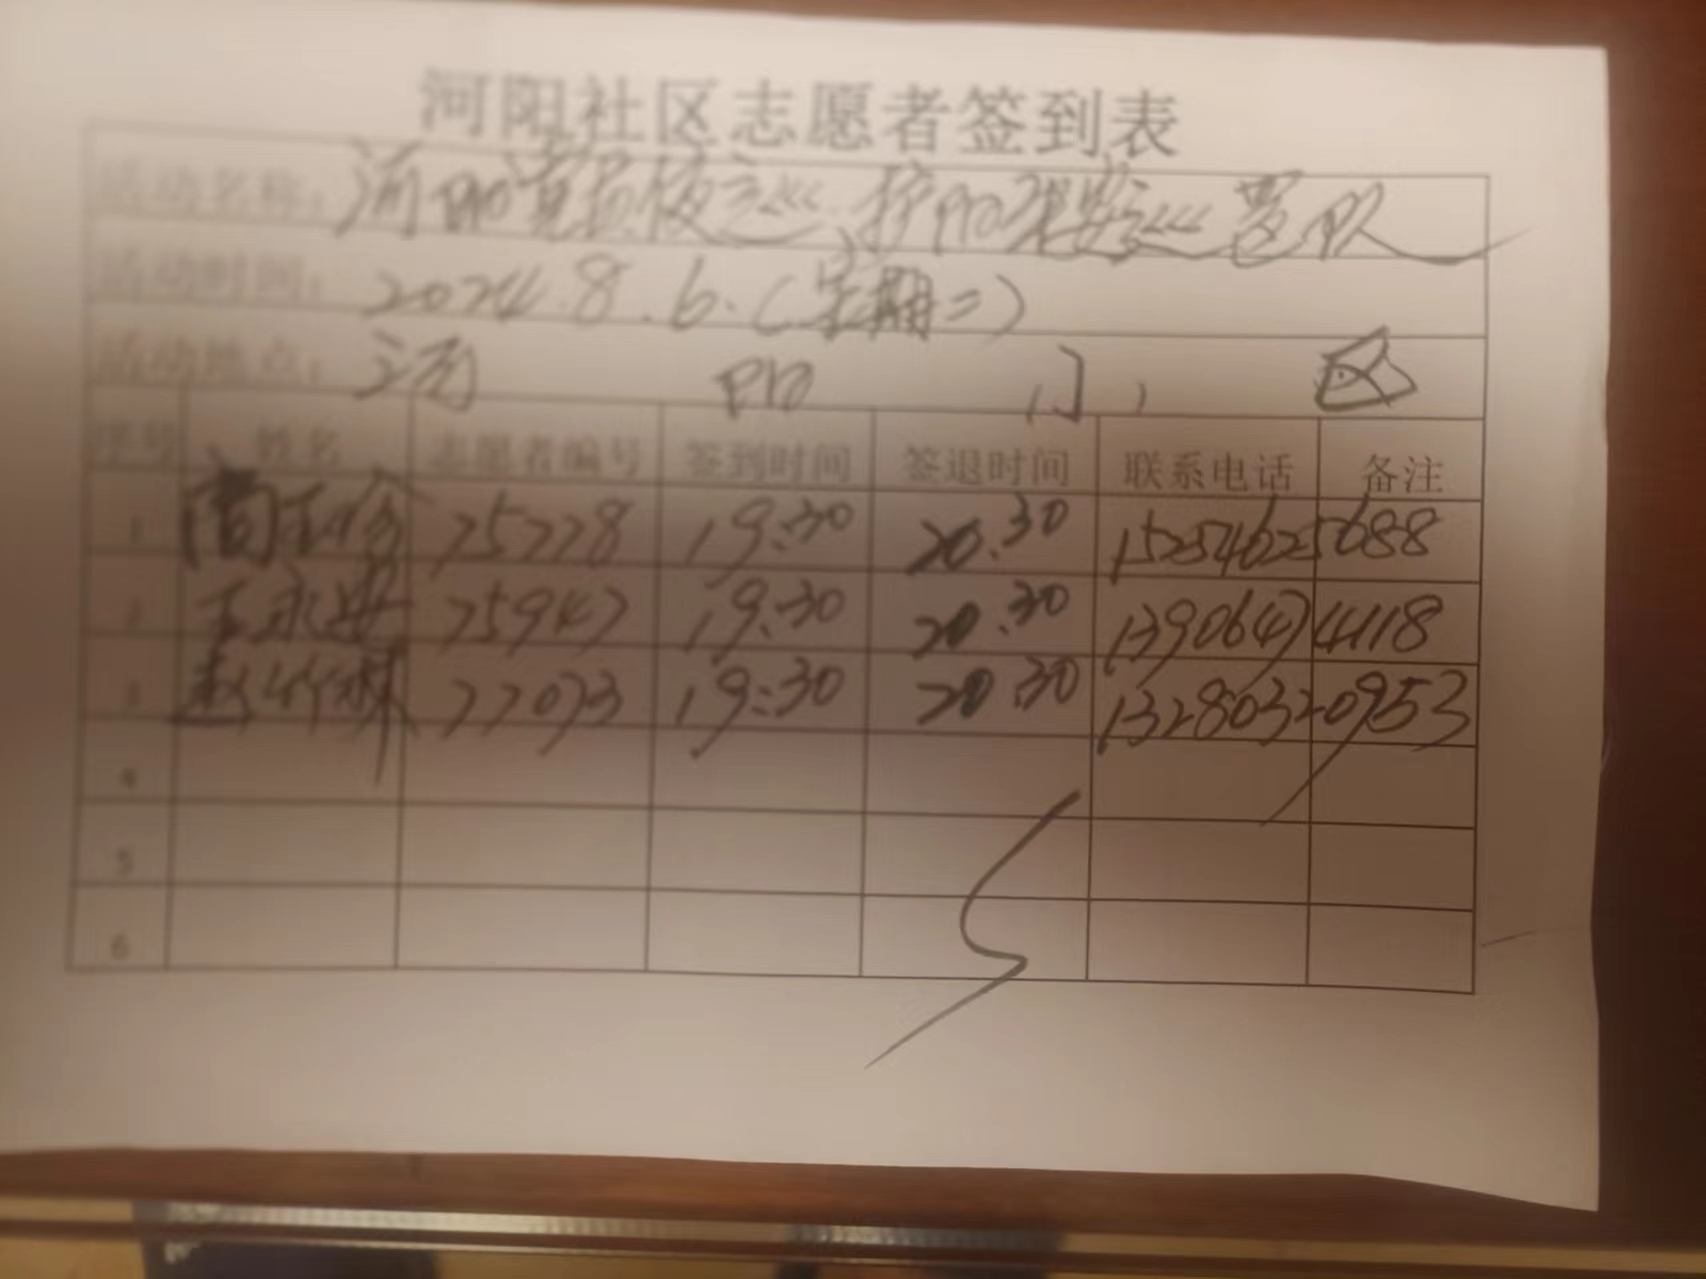 河阳社区志愿者签到表
活动名称: 河阳 夜 巡 队
活动时间: 2024.8.6.(星期二)
活动地点: 河阳小区
序号 姓名 志愿者编号 签到时间 签退时间 联系电话 备注
1 75278 19:30 20:30 15254625688
2 王永 75947 19:30 20:30 13906474118
3 赵竹 77073 19:30 20:30 13280320953
4
5
6